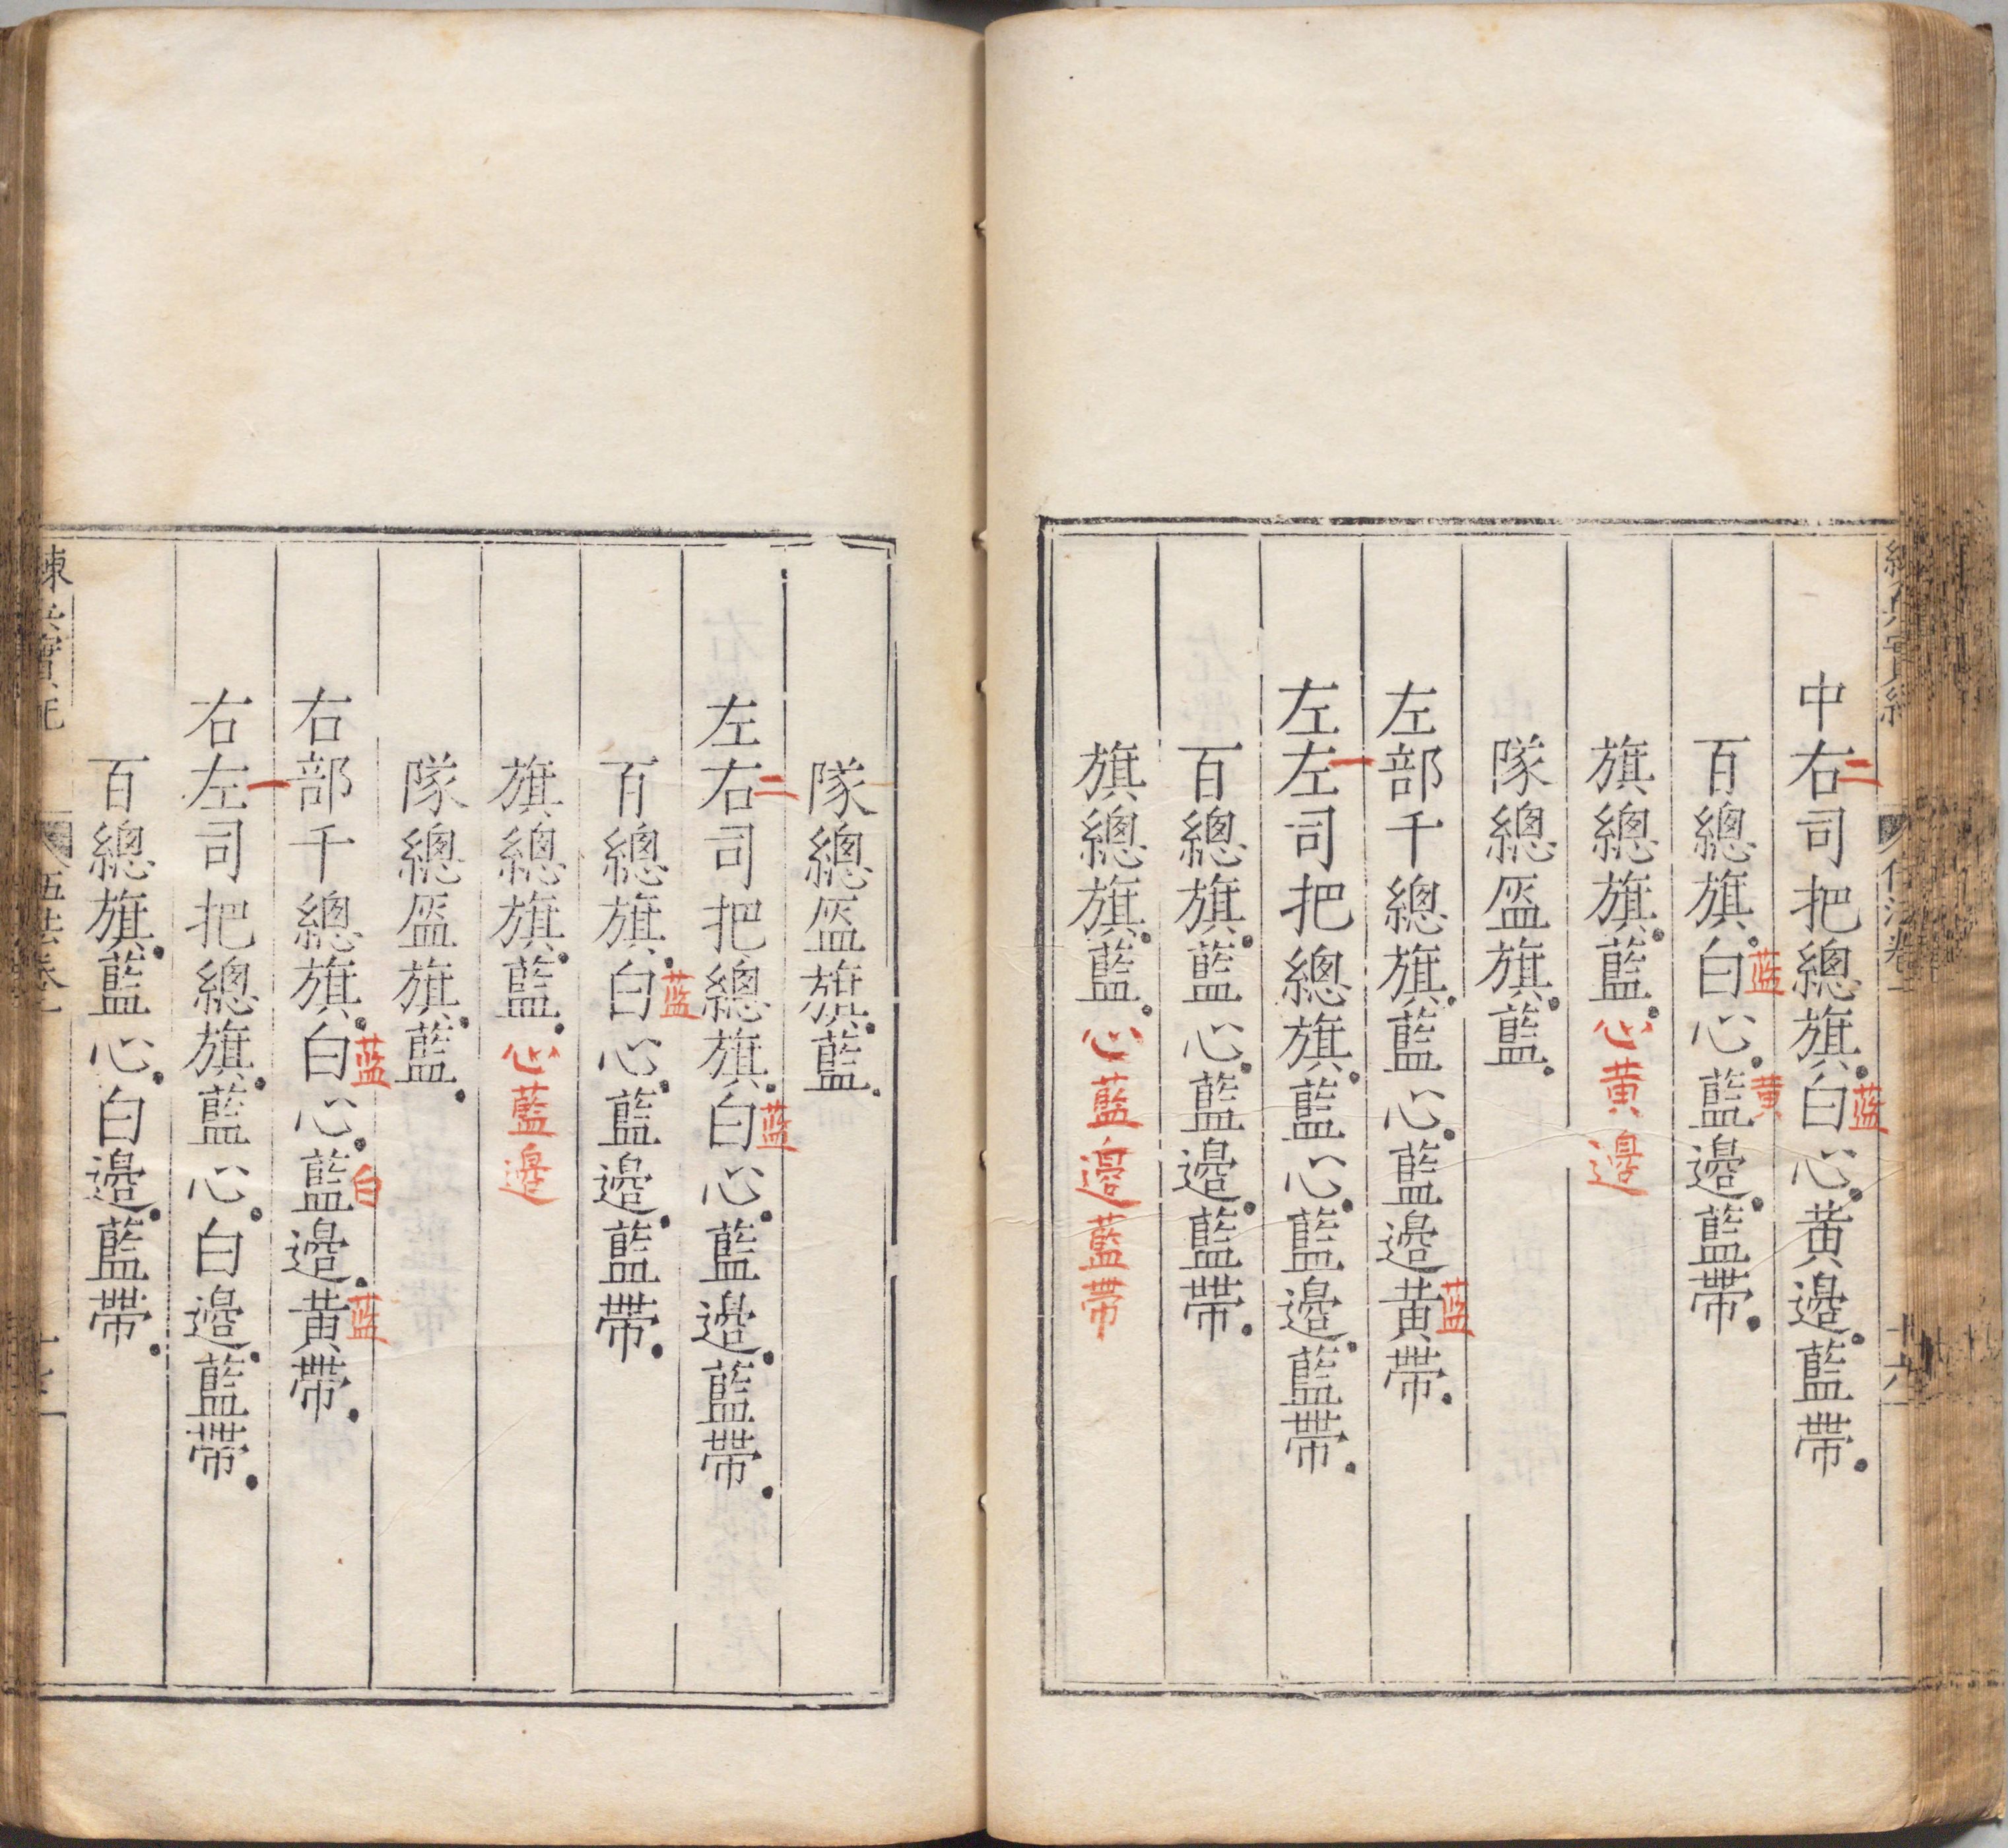 中右司把總旗白心黃邊藍帶
二
蓝
百總旗白心藍邊藍帶
蓝
黄
旗總旗藍心黄邊
隊總盔旗藍
左部千總旗藍心藍邊黃帶
蓝
左左司把總旗藍心藍邊藍帶
一
百總旗藍心藍邊藍帶
旗總旗藍心藍邊藍帶
隊總盔旗藍
左右司把總旗白心藍邊藍帶
二
蓝
百總旗白心藍邊藍帶
蓝
旗總旗藍心藍邊
隊總盔旗藍
右部千總旗白心藍邊黃帶
蓝
白
蓝
右左司把總旗藍心白邊藍帶
一
百總旗藍心白邊藍帶